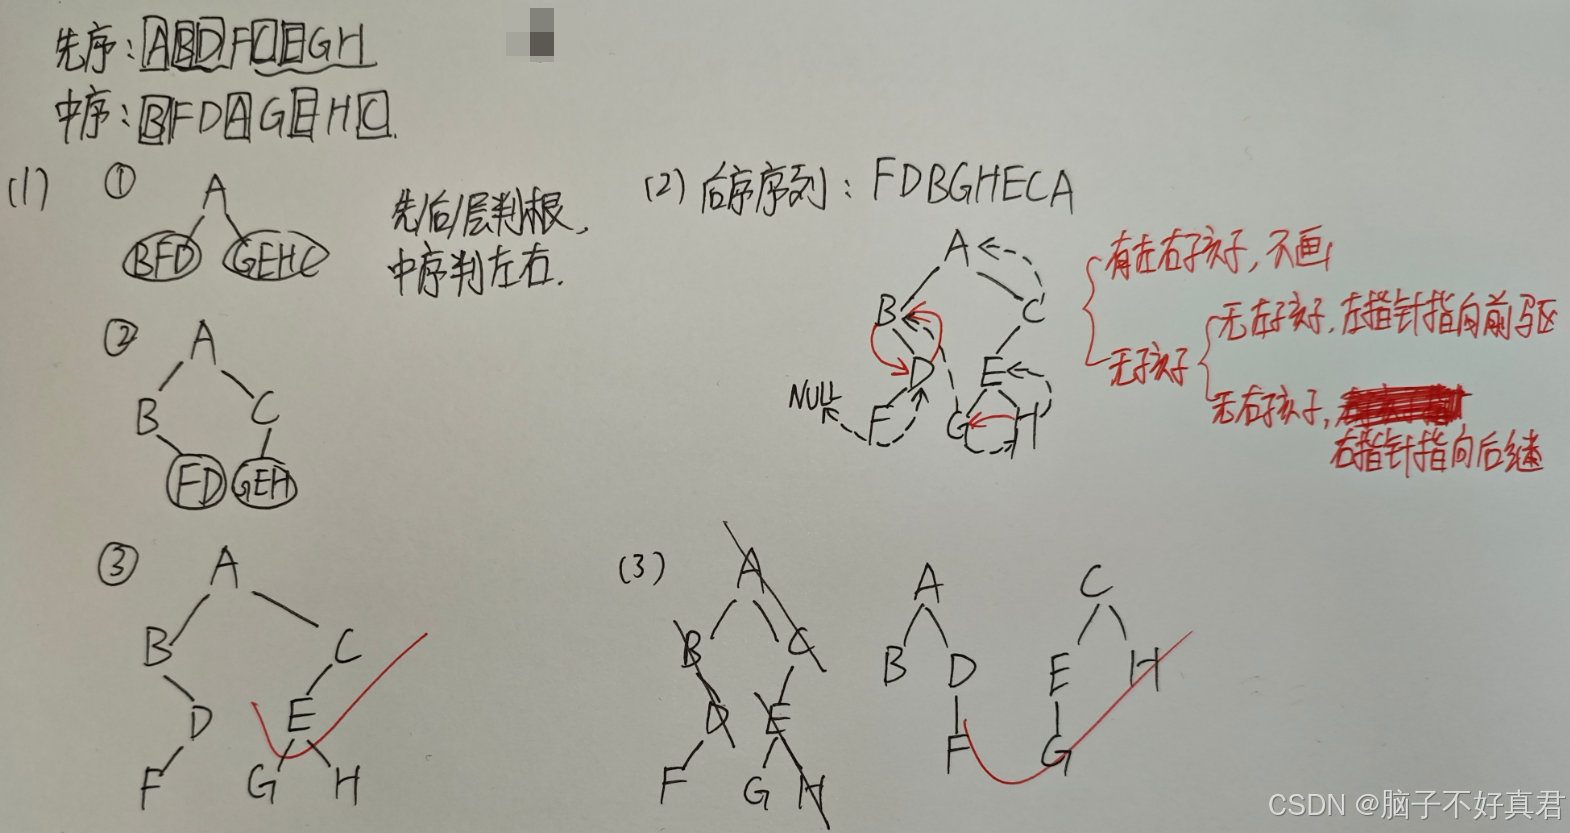 先序:ABDFCEGH
中序:BFDAGEHC.
(1) ①
A
BFD GEHC
先/后/层判根,
中序判左右.
②
A
B C
FD GEH
③
A
B C
D E
F G H
(2) 后序序列:FDBGHECA
A
B C
D E
NULL F G H
有左右子孩子,不画
无子孩子
无左子孩子,左指针指向前驱
无右子孩子,
右指针指向后继
(3)
A
B C
D E
F G H
A
B D
F
C
E H
G
CSDN @脑子不好真君